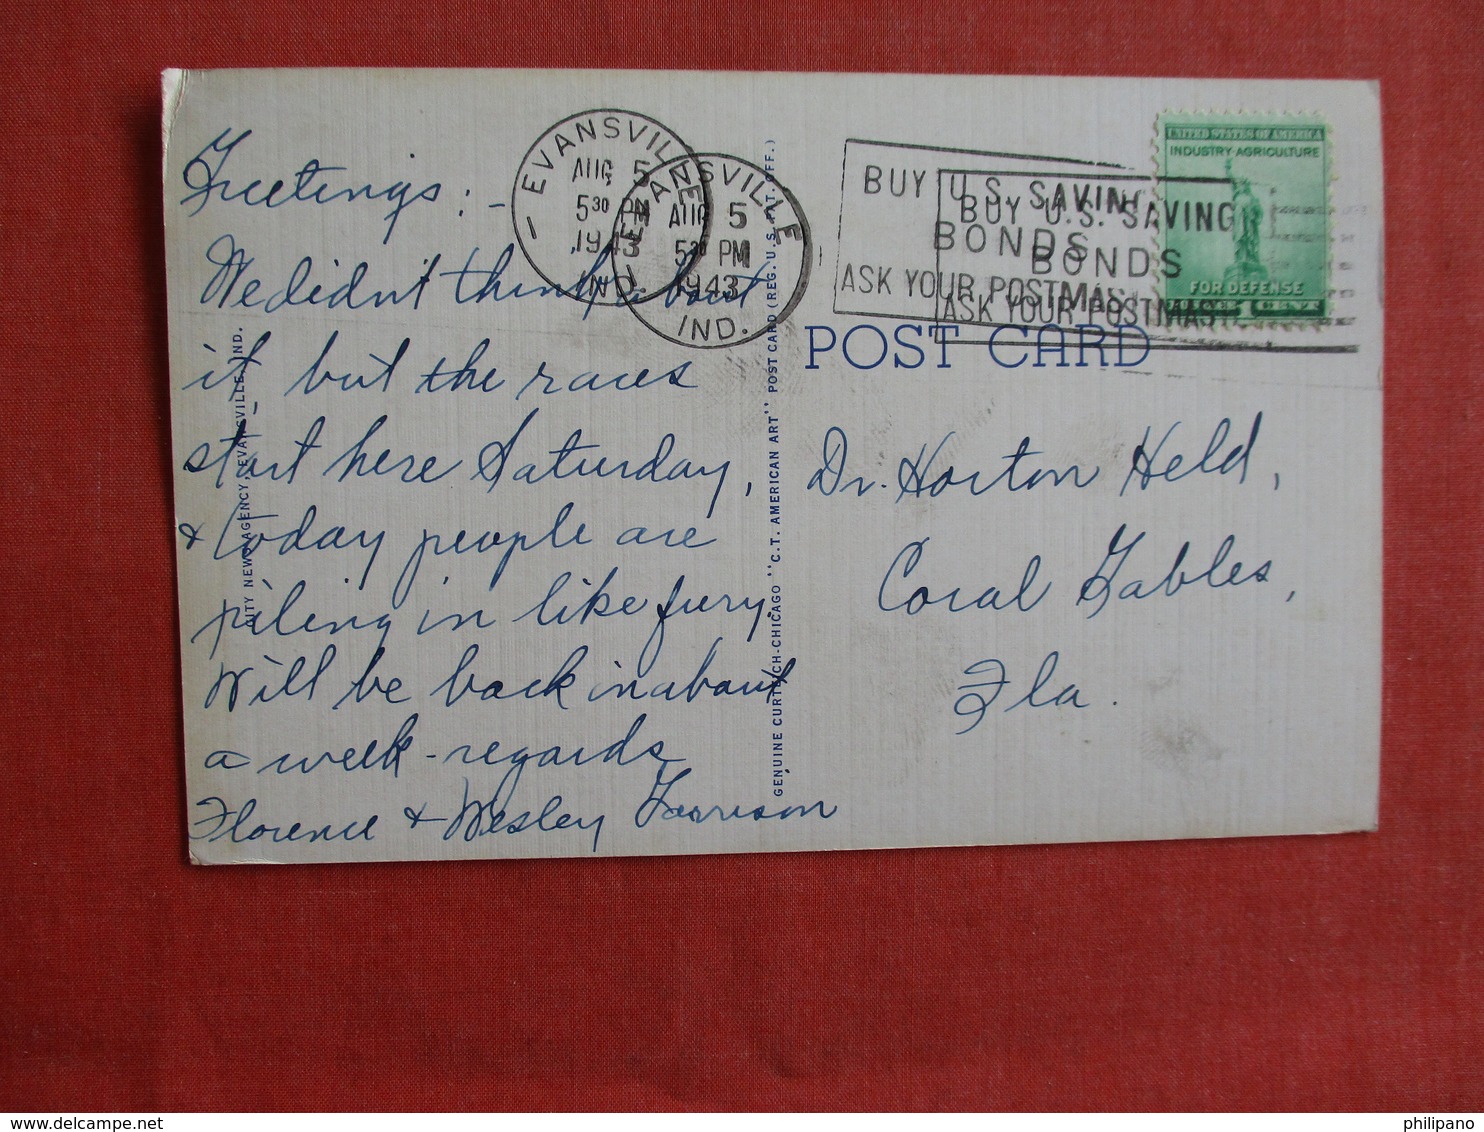 Greetings : -
We didn't think about
it, but the races
start here Saturday,
& today people are
piling in like fury.
Will be back in about
a week - regards
Florence & Wesley Garrison
CITY NEWS AGENCY, EVANSVILLE, IND.
GENUINE CURTEICH-CHICAGO "C.T. AMERICAN ART" POST CARD (REG. U.S. PAT. OFF.)
EVANSVILLE
AUG 5
5 30 PM
1943
IND.
EVANSVILLE
AUG 5
5 30 PM
1943
IND.
BUY U.S. SAVING
BONDS
ASK YOUR POSTMAS
BUY U.S. SAVING
BONDS
ASK YOUR POSTMAS
UNITED STATES OF AMERICA
INDUSTRY AGRICULTURE
FOR DEFENSE
1 CENT
POST CARD
Dr. Horton Held,
Coral Gables,
Fla.
philipano